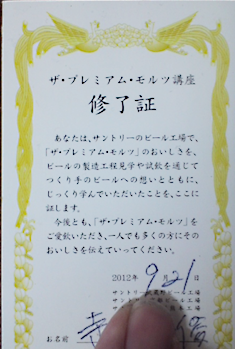 ザ・プレミアム・モルツ講座
修了証
あなたは、サントリーのビール工場で、
「ザ・プレミアム・モルツ」のおいしさを、
ビールの製造工程見学や試飲を通じて
つくり手のビールへの想いとともに、
じっくり学んでいただいたことを、ここに
証します。
今後とも、「ザ・プレミアム・モルツ」を
ご愛飲いただき、一人でも多くの方にその
おいしさを伝えていってください。
2012年 9月21日
サントリー 武蔵野ビール工場
サントリー ビール工場
サントリー ビール工場
お名前